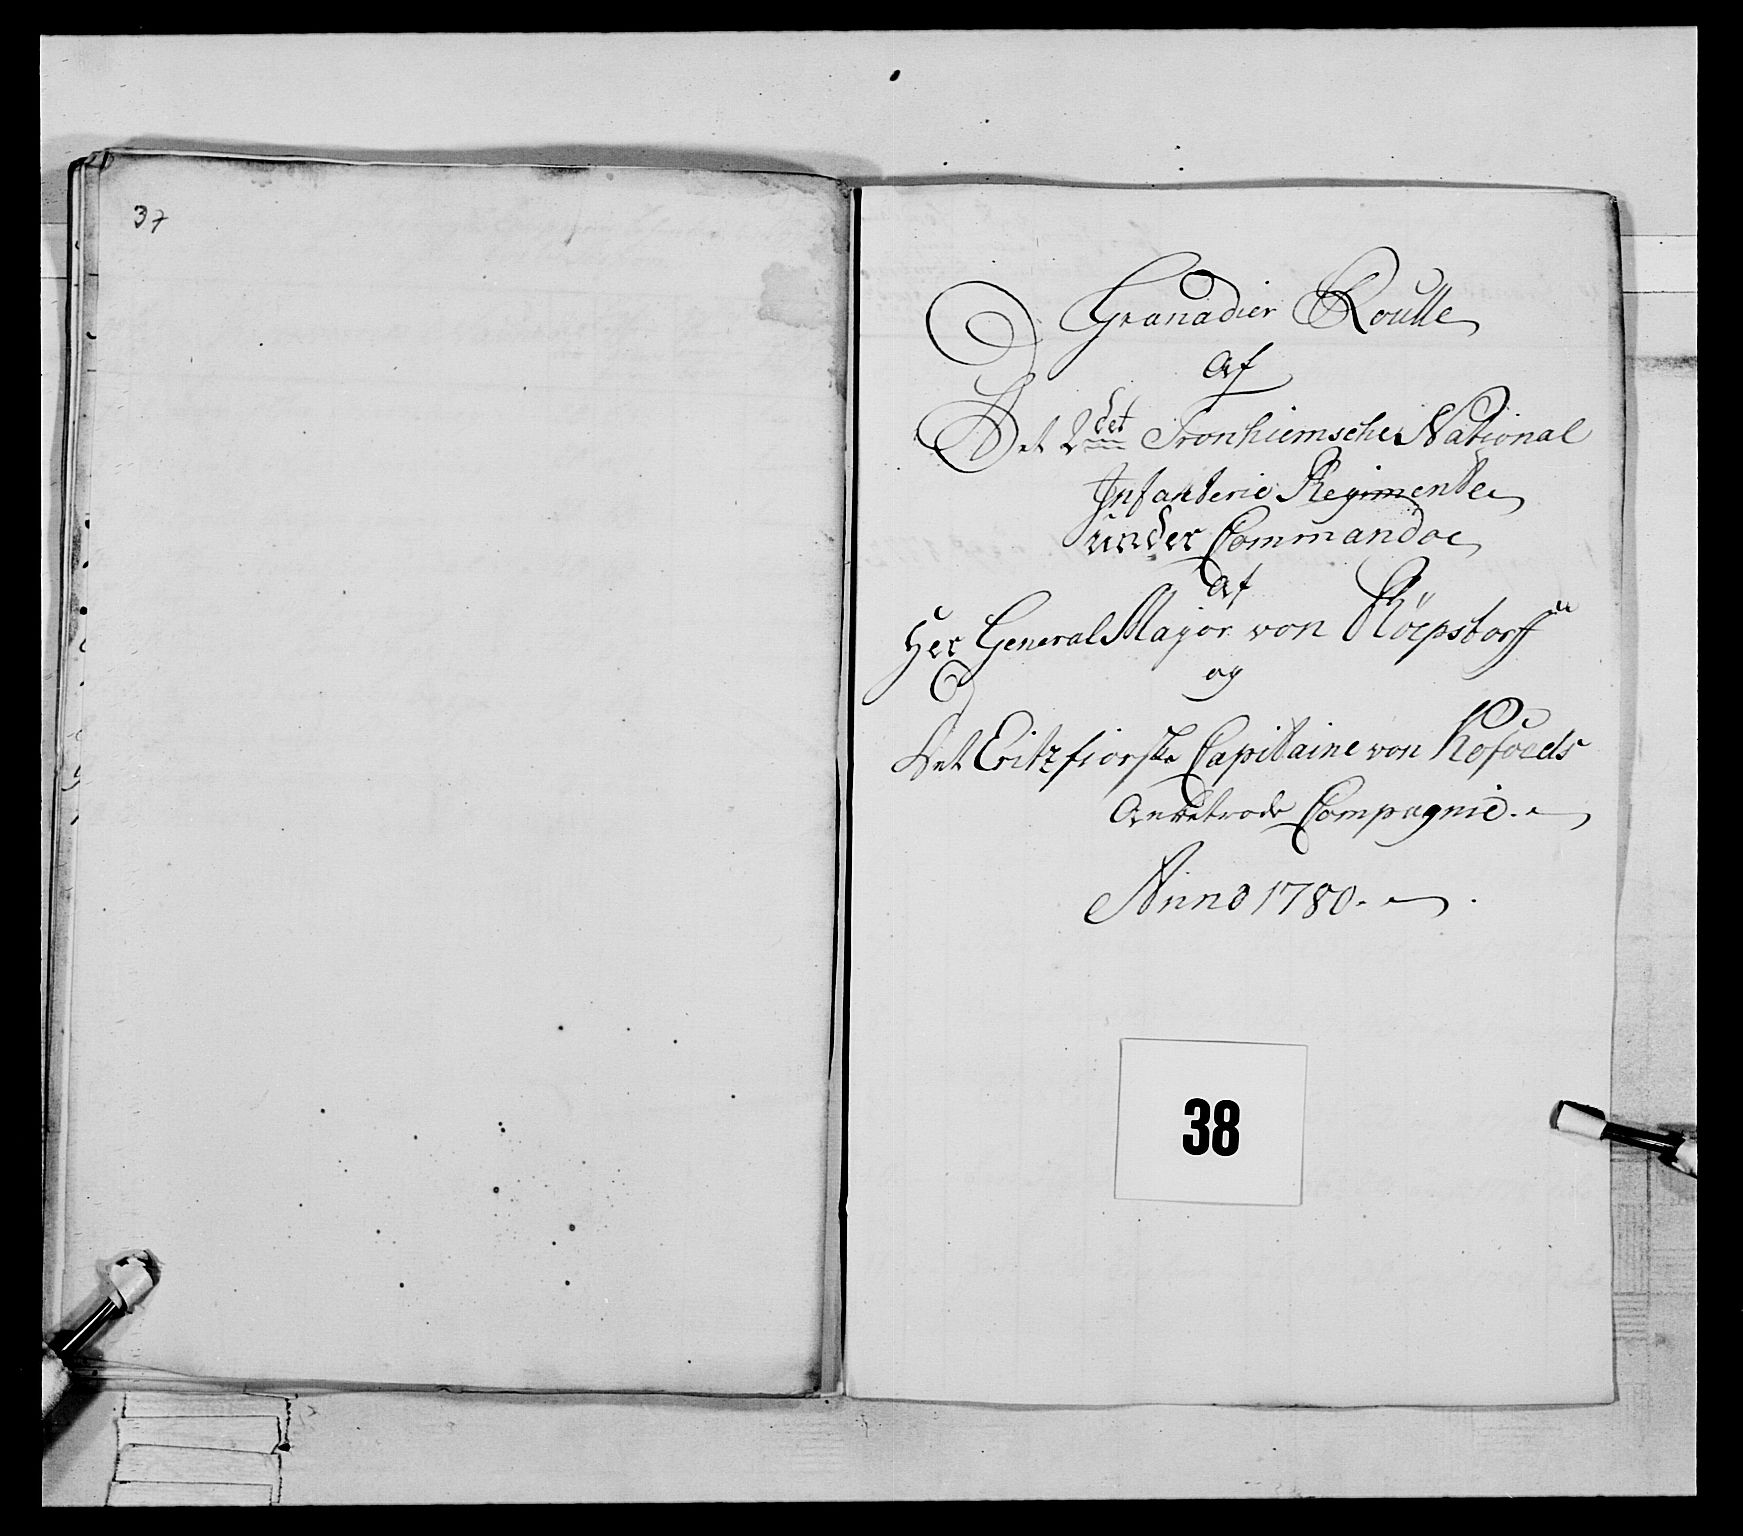 37
Granadier Roulle
Af
Det 2det Tronhiemsche National
Infanterie Regimente
under Commandoe
Af
Her General Major von Röepstorff
og
Det Eitzfiorske Capitaine von Kofoeds
Anbetrode Compagnie.
Anno 1780.
38